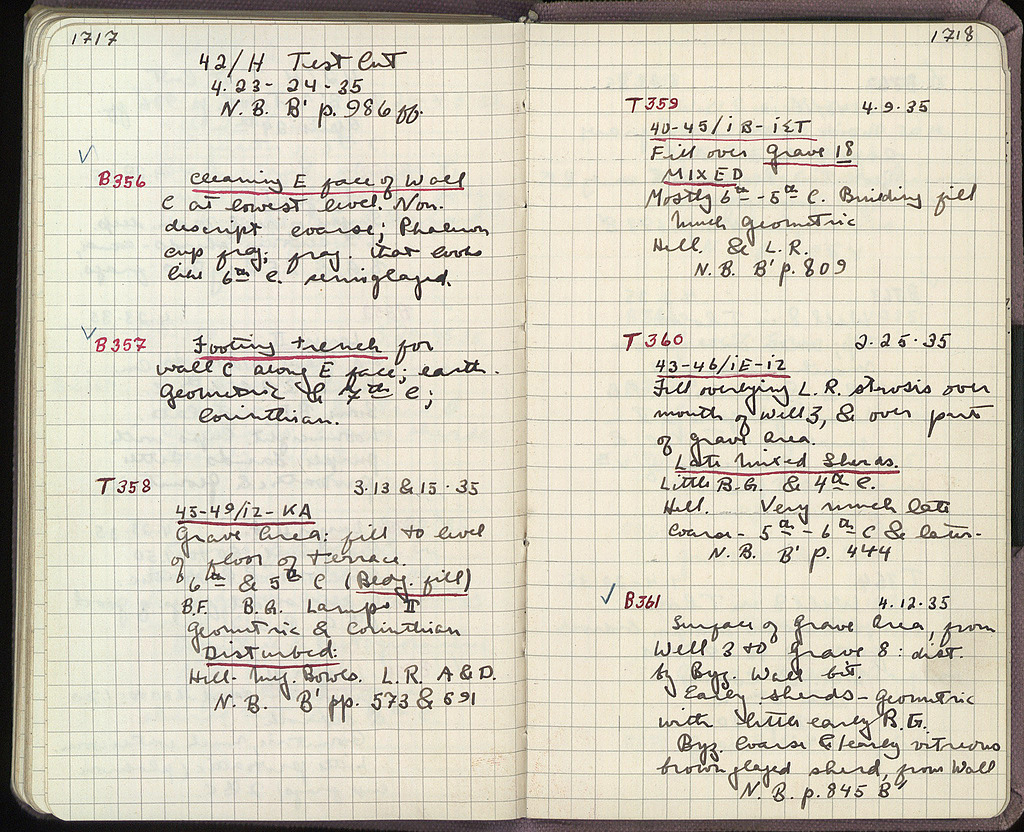 1717
42/H Test Cut
4.23-24-35
N.B. B' p. 986 ff.
B356 Cleaning E face of Wall
C at lowest level. Non-
descript coarse; Phaleron
cup frag; frag. that looks
like 6th c. semiglazed.
B357 Footing trench for
wall C along E face; earth.
Geometric & 7th c;
Corinthian.
T358 3.13 & 15.35
45-49/iz-KA
Grave Area: fill to level
of floor of Terrace.
6th & 5th C (Bldg. fill)
B.F. B.G. Lamps II
Geometric & Corinthian
Disturbed:
Hell- Meg. Bowls. L.R. A & D.
N.B. B' pp. 573 & 591
1718
T359 4.9.35
40-45/iB-iΣT
Fill over Grave 18
MIXED
Mostly 6th - 5th C. Building fill
Much Geometric
Hell. & L.R.
N.B. B' p. 809
T360 2.25.35
43-46/iE-iz
Fill overlying L.R. strosis over
mouth of Well 3, & over part
of grave area.
Late Mixed Sherds.
Little B.G. & 4th c.
Hell. Very much late
Coarse - 5th - 6th C & later-
N.B. B' p. 444
B361 4.12.35
Surface of Grave Area, from
Well 3 to Grave 8: dist.
by Byz. Wall bit.
Early sherds - Geometric
with little early B.G.
Byz. Coarse & 1 early vitreous
brown glazed sherd, from Wall
N.B. p. 845 B'